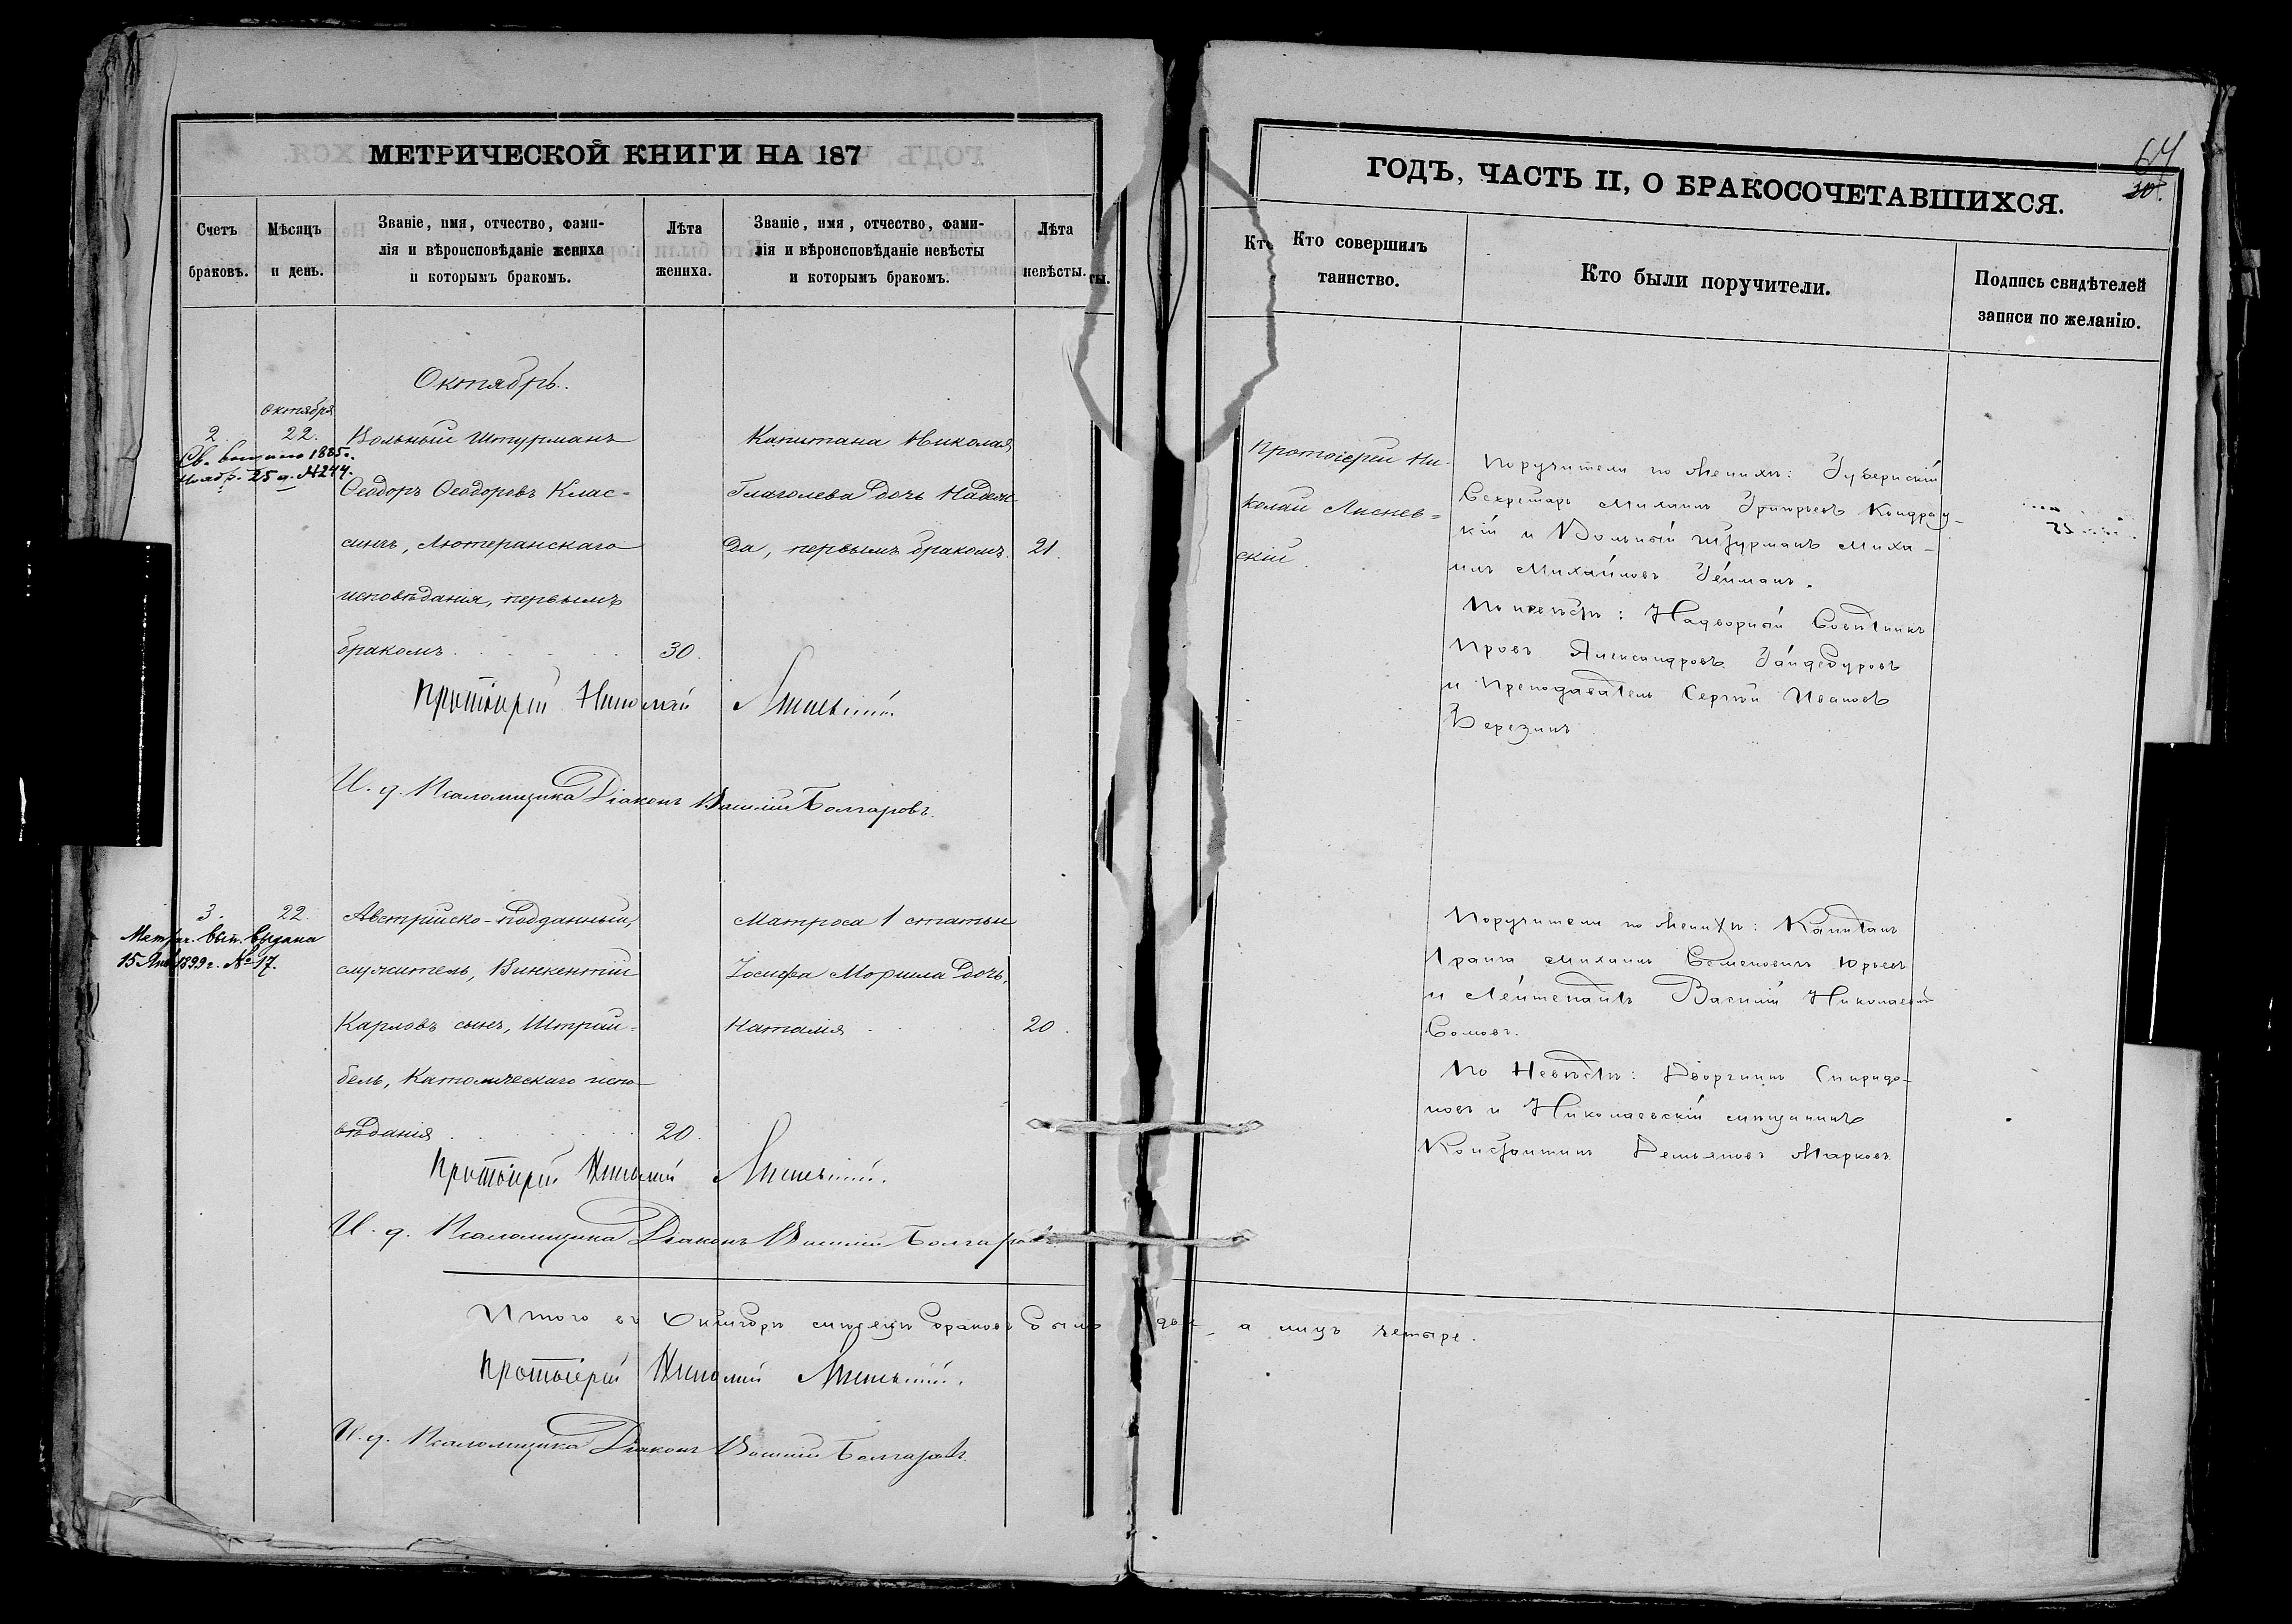 МЕТРИЧЕСКОЙ КНИГИ НА 187
Счетъ браковъ.
Мѣсяцъ и день.
Званіе, имя, отчество, фами-
лія и вѣроисповѣданіе жениха
и которымъ бракомъ.
Лѣта жениха.
Званіе, имя, отчество, фами-
лія и вѣроисповѣданіе невѣсты
и которымъ бракомъ.
Лѣта невѣсты.
Октябрь.
Октября
2. 22.
Св. 1885г.
Ноябр. 25 д. №244.
Вольный Штурманъ
Ѳеодоръ Ѳеодоровъ Клас-
синъ, Лютеранскаго
исповѣданія, первымъ
бракомъ. 30.
Капитана Николая
Глаголева дочь Надеж-
да, первымъ бракомъ. 21.
Протоіерей Николай
И. д. Псаломщика Діаконъ Василій Болгаровъ.
3. 22.
Метрич. вып. выдана
15 Янв 1899 г. № 17.
Австрійско-подданный,
служитель, Викентій
Карловъ сынъ, Штрай-
бель, Католическаго испо-
вѣданія 20.
Матроса 1 статьи
Іосифа дочь,
Наталія 20.
Протоіерей Николай
И. д. Псаломщика Діаконъ Василій Болгаровъ.
Итого въ Октябрѣ мѣсяцѣ браковъ было два, а лицъ четыре.
Протоіерей Николай
И. д. Псаломщика Діаконъ Василій Болгаровъ
64
30.
ГОДЪ, ЧАСТЬ II, О БРАКОСОЧЕТАВШИХСЯ.
Кто совершилъ
таинство.
Кто были поручители.
Подпись свидѣтелей
записи по желанію.
Протоіерей Ни-
колай Лиснев=
скій.
Поручители по женихѣ: Губернскій
Секретарь Михаилъ Григорьевъ
кій и Вольный Штурманъ Миха-
илъ Михайловъ Гейманъ.
По невѣстѣ: Надворный Совѣтникъ
Провъ Александровъ Гайдебуровъ
и Преподаватель Сергѣй Ивановъ
Березинъ
Поручители по женихѣ: Капитанъ
1 ранга Михаилъ Семеновичъ Юрьевъ
и Лейтенантъ Василій Николаевичъ
Сомовъ.
По Невѣстѣ: Дворянинъ Спиридо-
новъ и Николаевскій мѣщанинъ
Константинъ Демьяновъ Марковъ